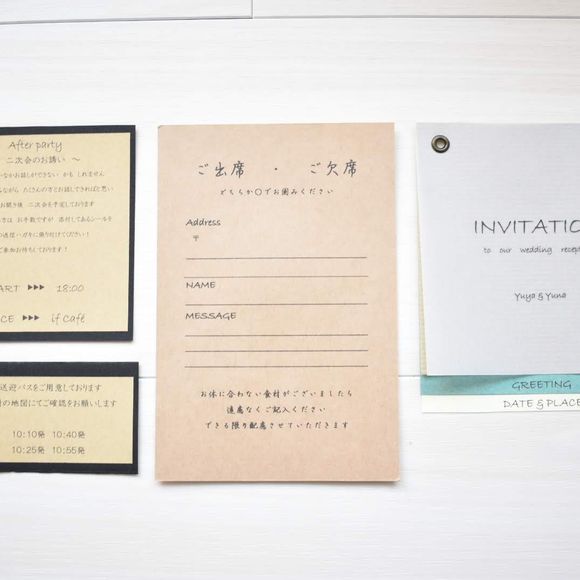 After party
二次会のお誘い 〜
かなかお話しができない かも しれません
ながら たくさんの方とお話しできればと思い
お開き後 二次会を予定しております
方は お手数ですが 添付してあるシールを
の返信ハガキに張り付けてください!
ご参加お待ちしております!
ART ▶▶▶ 18:00
CE ▶▶▶ if Café
送迎バスをご用意しております
の地図にてご確認をお願いします
10:10発 10:40発
10:25発 10:55発
ご出席 ・ ご欠席
どちらか○でお囲みください
Address
〒
NAME
MESSAGE
お体に合わない食材がございましたら
遠慮なくご記入ください
できる限り配慮させていただきます
INVITATIO
to our wedding recept
Yuya & Yuna
GREETING
DATE & PLACE